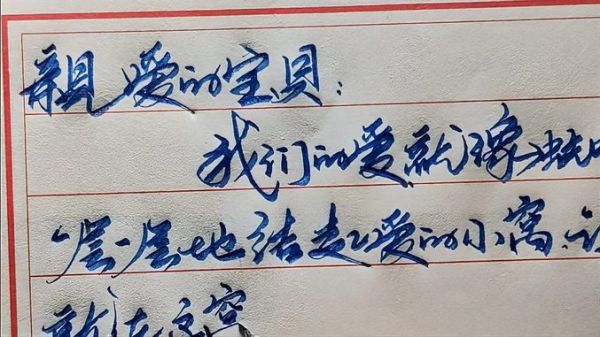 親爱的宝贝：
我们的爱就像
一层一层地结起爱的小窝，
就
空